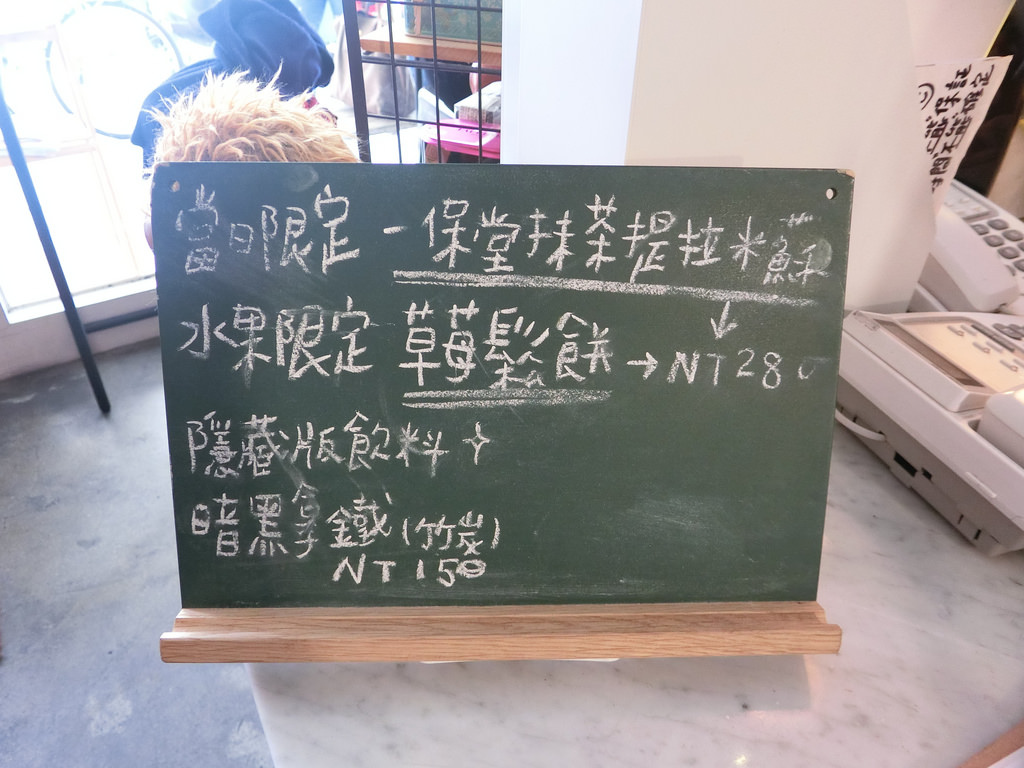 當日限定 一保堂抹茶提拉米蘇
水果限定 草莓鬆餅 → NT 280
隱藏版飲料
暗黑拿鐵(竹炭)
NT 150
保証
確定